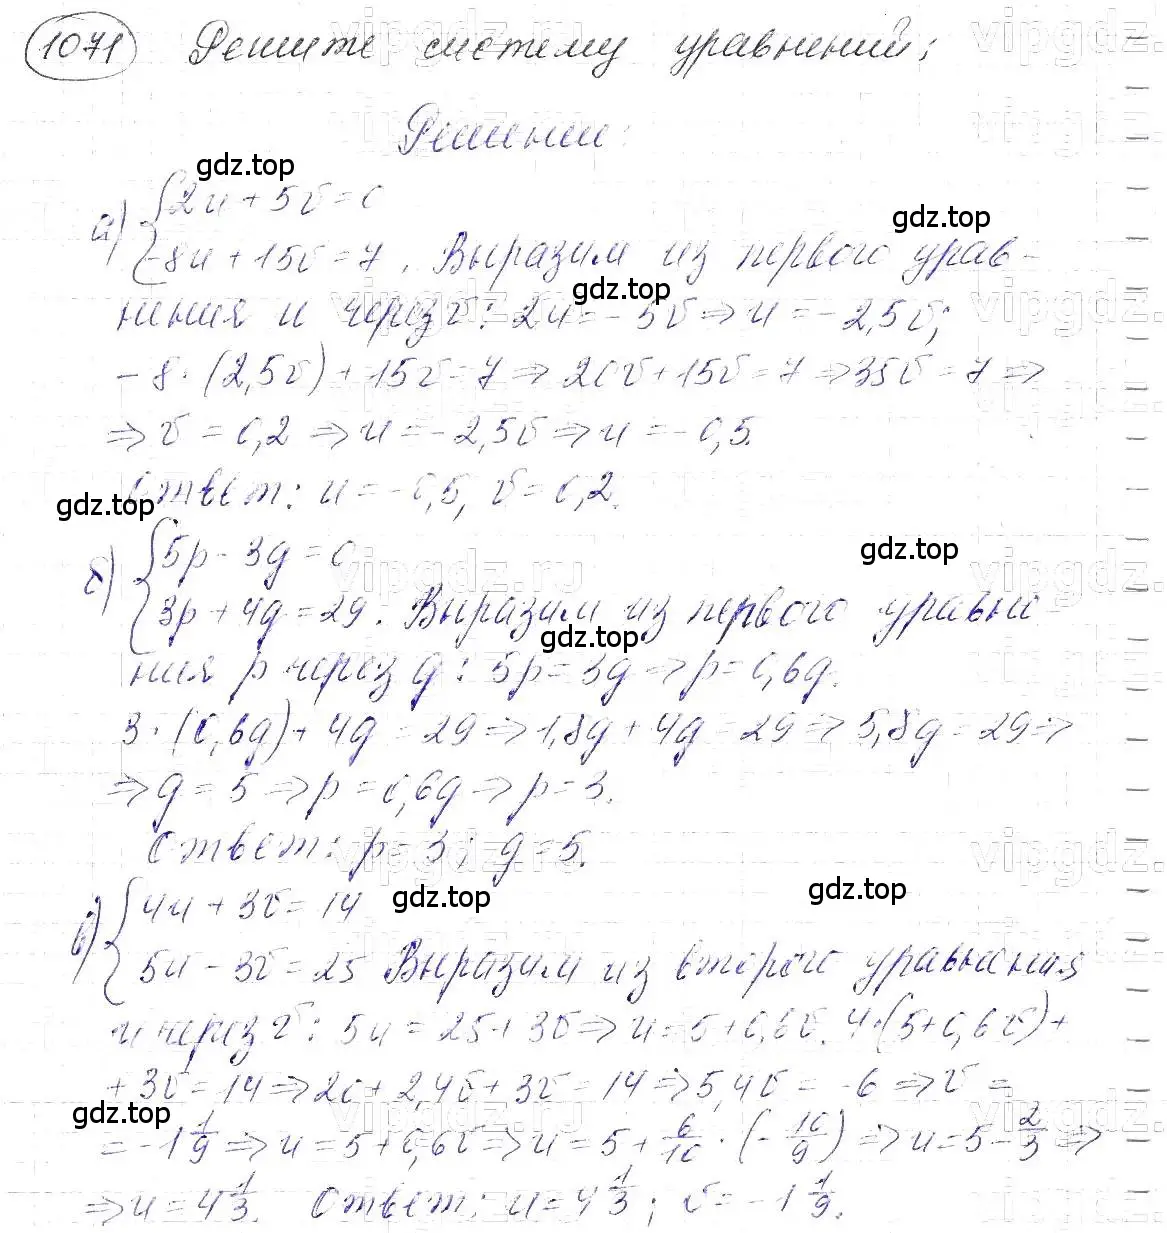 1071 Решите систему уравнений;
Решение:
gdz.top
а) {2u + 5v = 0
gdz.top
-8u + 15v = 7. Выразим из первого урав-
gdz.top
нения u через v: 2u = -5v ⇒ u = -2,5v;
-8·(2,5v) + 15v = 7 ⇒ 20v + 15v = 7 ⇒ 35v = 7 ⇒
⇒ v = 0,2 ⇒ u = -2,5v ⇒ u = -0,5.
Ответ: u = -0,5, v = 0,2.
gdz.top
б) {5p - 3g = 0
gdz.top
3p + 4g = 29. Выразим из первого уравне-
gdz.top
ния p через g: 5p = 3g ⇒ p = 0,6g.
3·(0,6g) + 4g = 29 ⇒ 1,8g + 4g = 29 ⇒ 5,8g = 29 ⇒
⇒ g = 5 ⇒ p = 0,6g ⇒ p = 3.
Ответ: p = 3; g = 5.
gdz.top
gdz.top
в) {4u + 3v = 14
5u - 3v = 25 Выразим из второго уравнения
u через v: 5u = 25 + 3v ⇒ u = 5 + 0,6v. 4·(5 + 0,6v) +
+ 3v = 14 ⇒ 20 + 2,4v + 3v = 14 ⇒ 5,4v = -6 ⇒ v =
gdz.top
= -1 1/9 ⇒ u = 5 + 0,6v ⇒ u = 5 + 6/10 · (-10/9) ⇒ u = 5 - 2/3 ⇒
⇒ u = 4 1/3. Ответ: u = 4 1/3; v = -1 1/9.